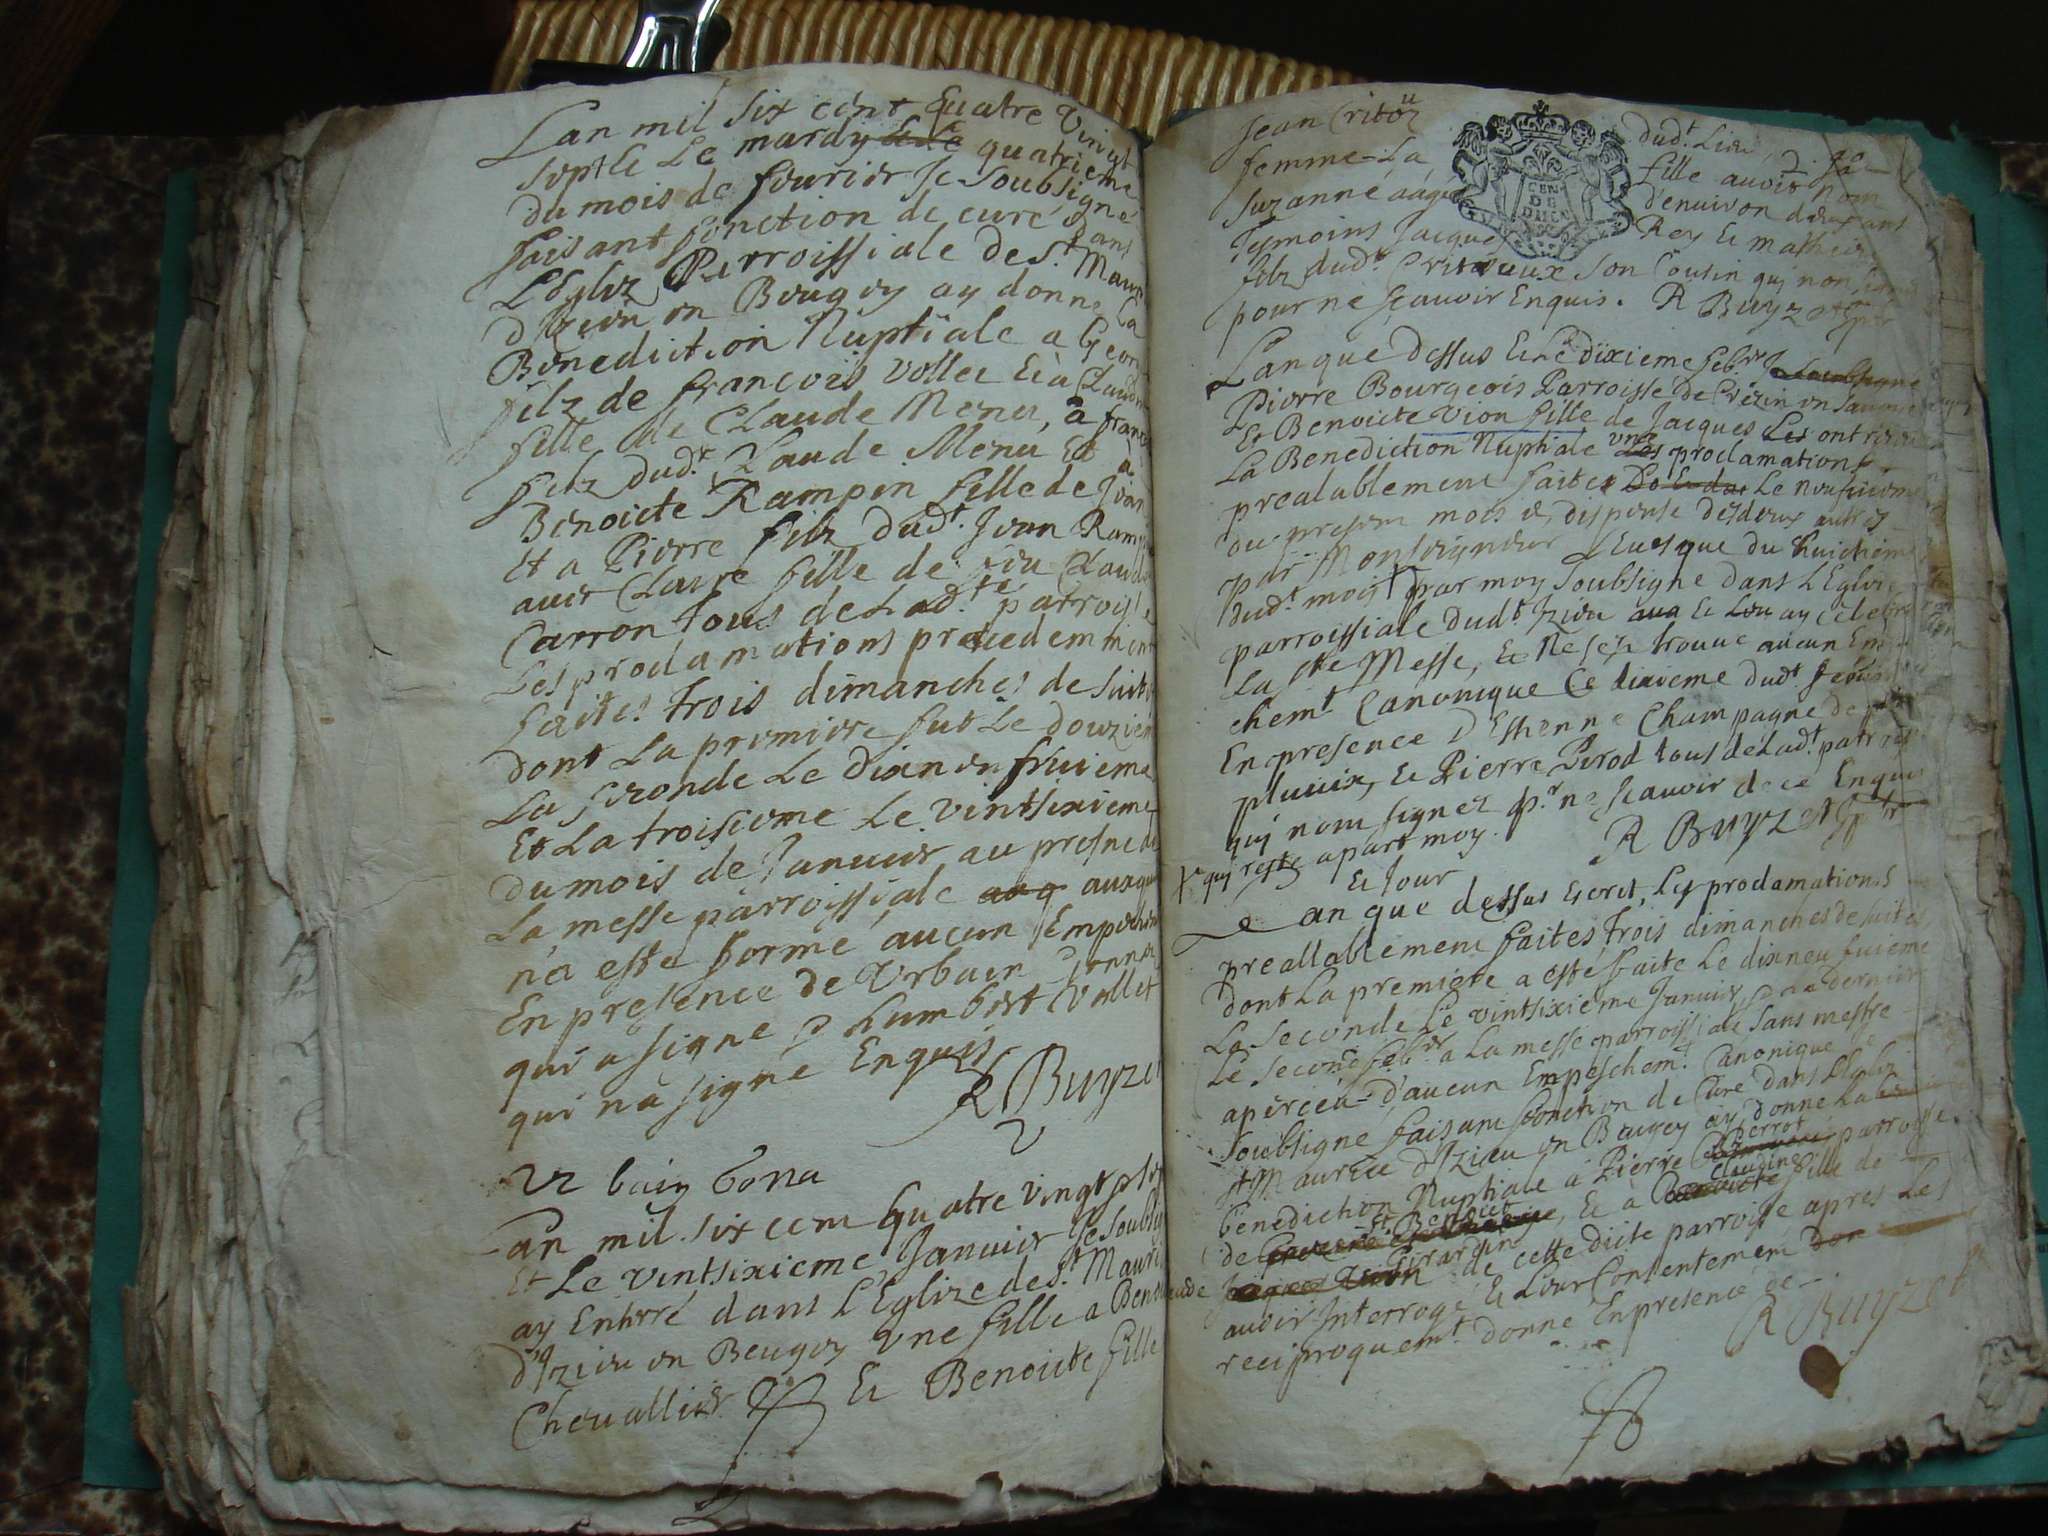 Lan mil six cent quatre vingt
sept & Le mardy quatrieme
du mois de feurier Je soubsigné
faisant fonction de curé dans
L'Eglize Parroissiale de St. Mauri
d'Izieu en Beugey ay donne La
Benediction Nuptiale a Geor
filz de francois vollet & à Claud
fille de Claude Menu, à franc
filz dudt. Claude Menu Et à
Benoicte Rampin fille de Jean
Et a Pierre filz dudt. Jean Ramp
auec Claire fille de feu Claude
Carron tous de Ladte. parroisse
Les proclamations precedemment
faites trois dimanches de suite
dont La premiere fut Le douziem
La seconde Le dixneufuieme
Et La troisieme Le vintsixieme
du mois de Januier au prosne de
La messe parroissiale auxque
n'a esté formé aucun Empechem
En presence de Vrbain
qui a signé & humbert vollet
qui n'a signé Enquis
R Buyzet
Vr bain bona
L'an mil six cent quatre vingt sept
Et Le vintsixieme Januier Je soubsig
ay Enterré dans L'Eglize de St. Mauri
d'Izieu en Beugey vne fille a Beno
Cheuallier & Benoicte fille
Jean Critou dudt. Lieu
femme La fille auoit nom
suzanne aagé d'enuiron deux ans
Tesmoins Jacque Rey & mathieu
filz dudt. Critoueux son Cousin qui non signé
pour ne sçauoir Enquis. R Buyzet
CEN
DE
DIX
L'an que Dessus & Le dixieme febr.
Pierre Bourgeois Parroisse de en Sauoye
Et Benoicte Vion fille de Jacques ont receu
La Benediction Nuptiale vne proclamation
prealablement faite Le neufuieme
du present mois & dispense des deux autres
par Monseigneur L'Euesque du huictieme
dudt. mois par moy soubsigné dans L'Eglize
parroissiale dudt. Izieu & Lou ay celebré
La ste Messe, & Ne s'est trouué aucun Em
chemt Canonique Ce dixieme dudt febur
En presence D'Estienne Champagne de
pluuix, & Pierre Pirod tous de Ladt. parroisse
qui nom signez pr. ne scauoir de ce Enquis
qui reste apart moy. R Buyzet
& Jour
L'an que dessus Escrit, Les proclamations
preallablement faites trois dimanches de suites
dont La premiere a esté faite Le dixneufuieme
La seconde Le vintsixieme Januier & La derniere
Le second febr. a La messe parroissiale sans mestre
aperceu d'aucun Empeschemt. Canonique Je
soubsigné faisant fonction de Curé dans L'Eglize
St Maurice d'Izieu en Baugey ay donne La
benediction Nuptiale à Pierre Perrot parroisse
de St Benoict, & à Claudine fille de
Claude Girardin de cette dicte parroisse apres Les
auoir Interrogé & Leur Consentement
reciproquemt. donné En presence de
R Buyzet